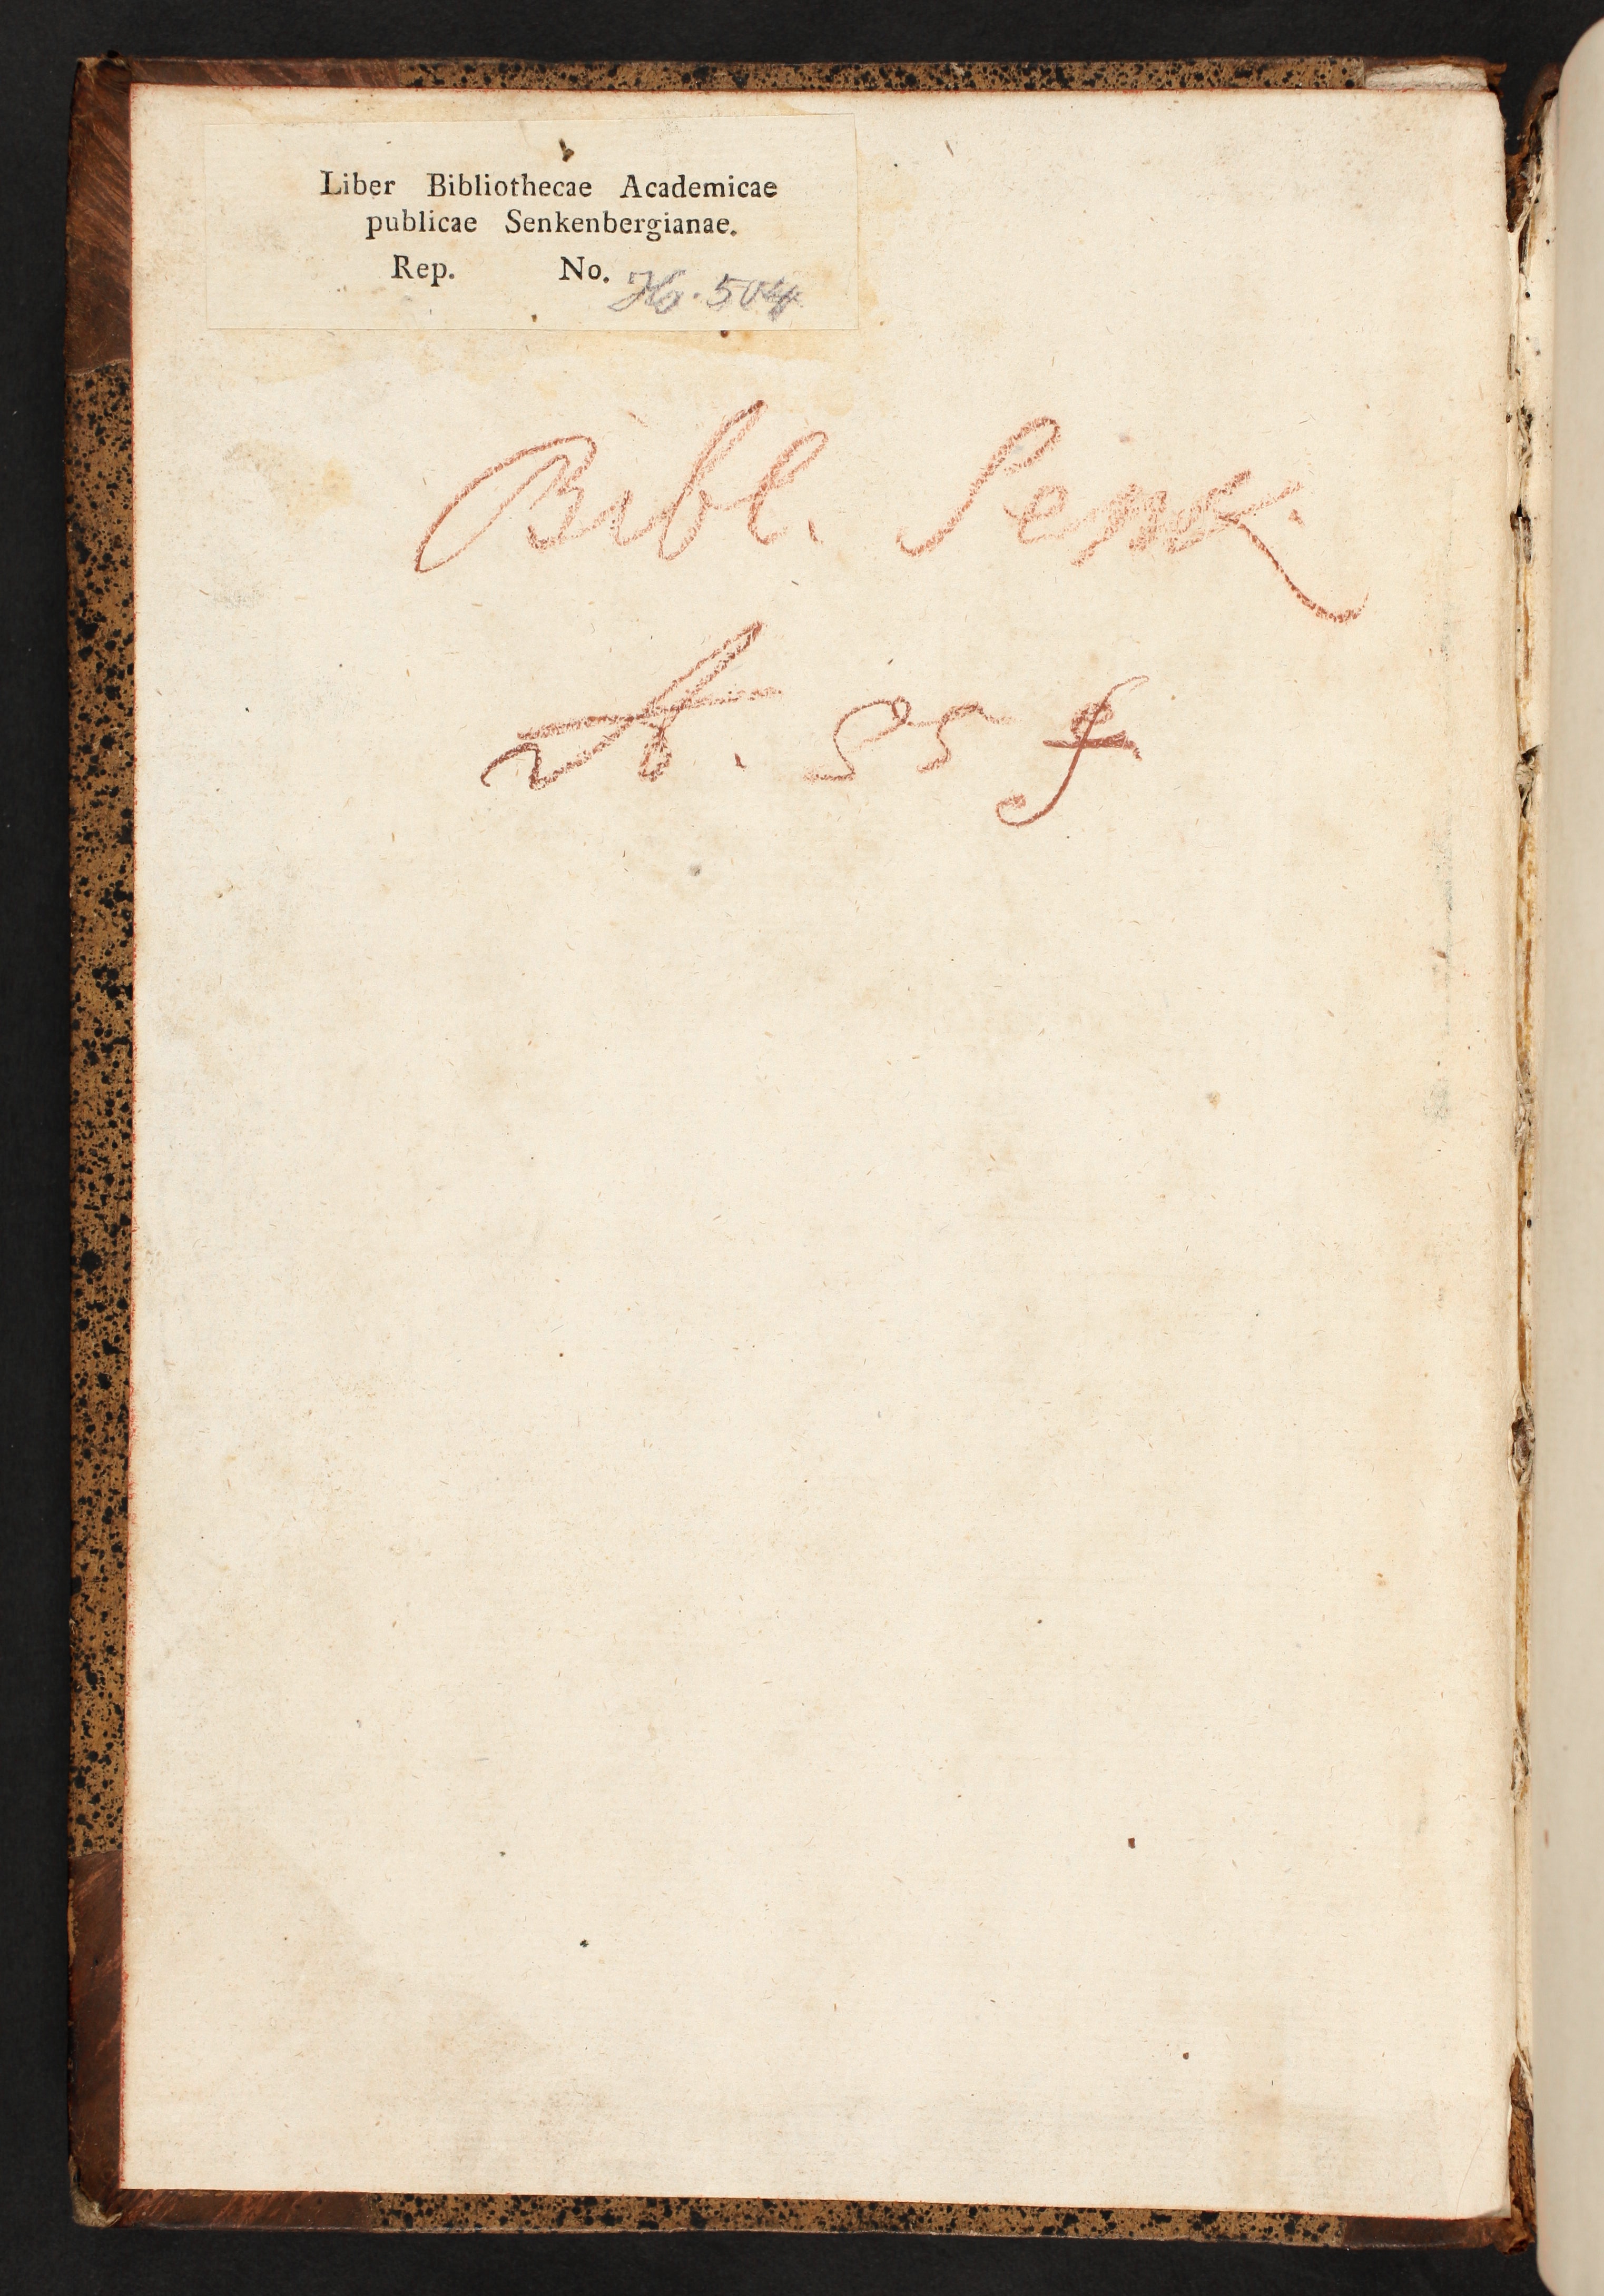 Liber Bibliothecae Academicae
publicae Senkenbergianae.
Rep. No. H. 504
Bibl. Senck.